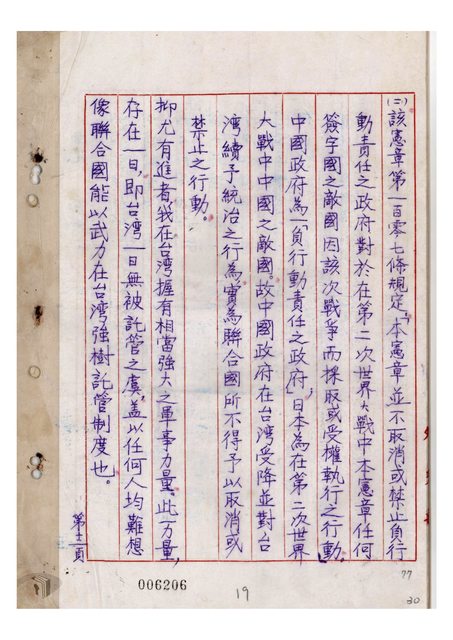 (二)該憲章第一百零七條規定「本憲章並不取消或禁止負行
動責任之政府對於在第二次世界大戰中本憲章任何
簽字國之敵國因該次戰爭而採取或受權執行之行動。」
中國政府為「負行動責任之政府」,日本為在第二次世界
大戰中中國之敵國。故中國政府在台湾受降並對台
湾續予統治之行為實為聯合國所不得予以取消或
禁止之行動。
抑尤有進者,我在台湾握有相當強大之軍事力量。此一力量,
存在一日,即台湾一日無被託管之虞,蓋以任何人均難想
像聯合國能以武力在台湾強樹託管制度也。
第十一頁
006206
19
77
30